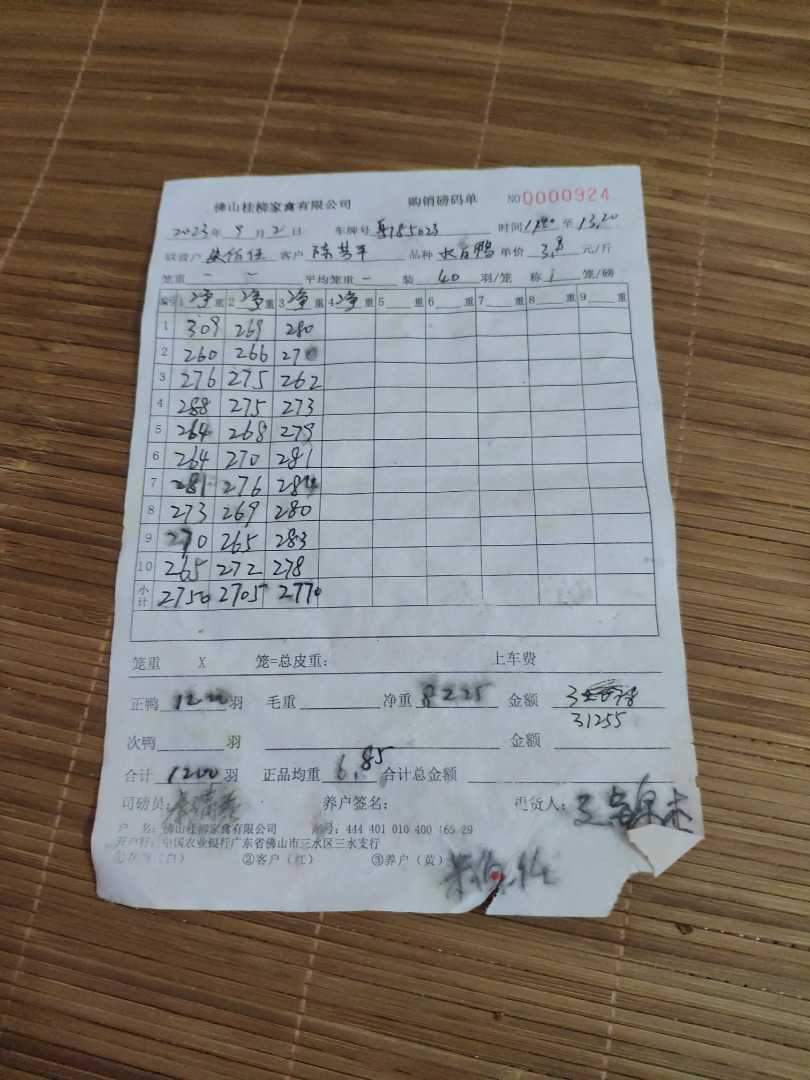 佛山桂柳家禽有限公司 购销磅码单 NO 0000924
2023年 9月 2日 车牌号 至13.20 时间
养户 客户 陈 品种 水白鸭 单价 3.8 元/斤
笼重 一 二 平均笼重 一 装 40 羽/笼 称 1 笼/磅
编号 1 净重 2 净重 3 净重 4 净重 5 重 6 重 7 重 8 重 9 重
1 309 269 280
2 260 266
3 276 275 262
4 288 275 273
5 264 268 279
6 264 270 281
7 281 276 284
8 273 269 280
9 270 265 283
10 265 272 278
小计 2750 2705 2770
笼重 X 笼=总皮重: 上车费
正鸭 1200 羽 毛重 净重 8225 金额
31255
次鸭 羽 金额
合计 1200 羽 正品均重 6.85 合计总金额
司磅员: 养户签名: 提货人:
户 名: 佛山桂柳家禽有限公司 账号: 444 401 010 400 165 29
开户行: 中国农业银行广东省佛山市三水区三水支行
(白) ②客户(红) ③养户(黄)